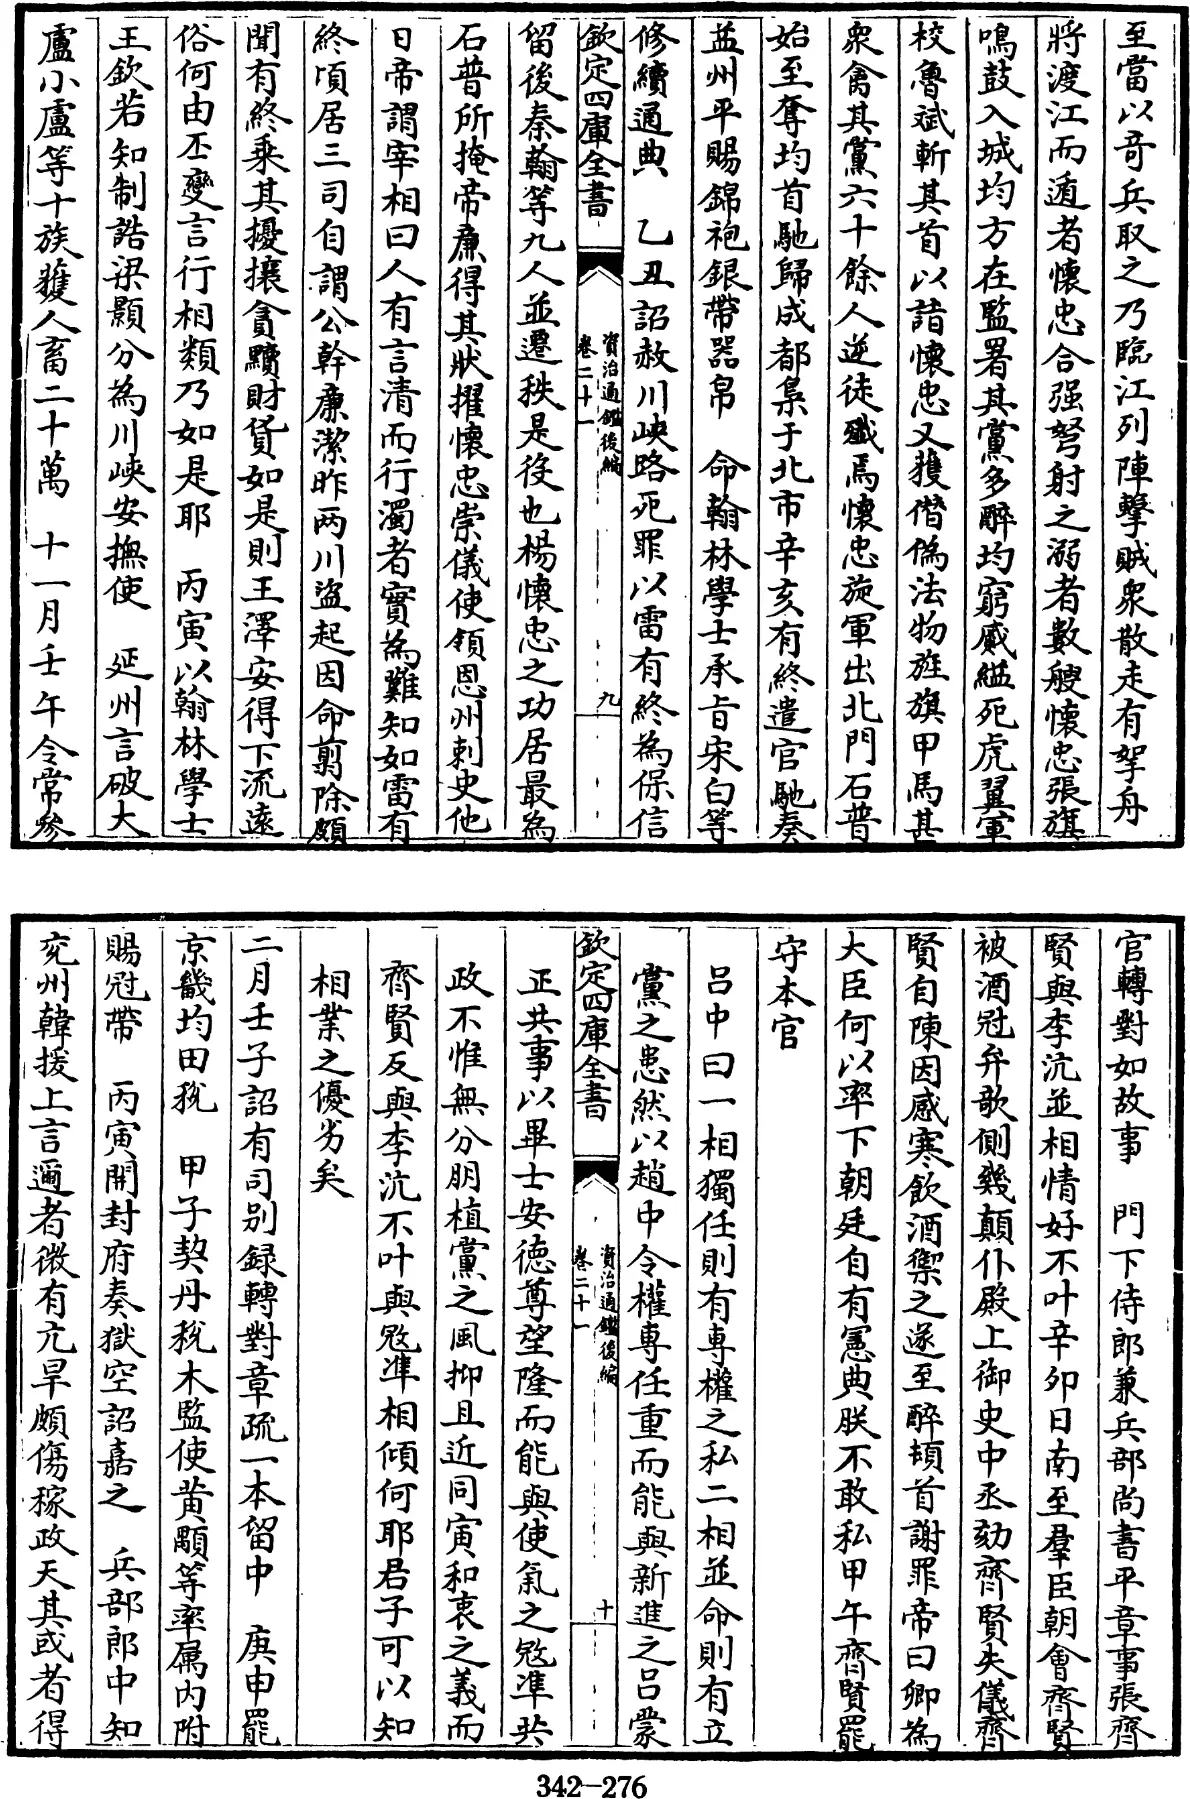 至當以奇兵取之乃臨江列陣擊賊衆散走有挐舟
將渡江而遁者懷忠合强弩射之溺者數艘懷忠張旗
鳴鼓入城均方在監署其黨多醉均窮蹙縊死虎翼軍
校魯斌斬其首以詣懷忠又獲僣偽法物旌旗甲馬甚
衆禽其黨六十餘人逆徒殱焉懷忠旋軍出北門石普
始至奪均首馳歸成都梟于北市辛亥有終遣官馳奏
益州平賜錦袍銀帶器帛 命翰林學士承旨宋白等
修續通典 乙丑詔赦川峽路死罪以雷有終為保信
欽定四庫全書 資治通鑑後編 卷二十一 九
留後秦翰等九人並遷秩是役也楊懷忠之功居最為
石普所掩帝廉得其狀擢懷忠崇儀使領恩州刺史他
日帝謂宰相曰人有言清而行濁者實為難知如雷有
終頃居三司自謂公幹廉潔昨两川盜起因命剪除頗
聞有終乘其擾攘貪黷財貨如是則王澤安得下流逺
俗何由丕變言行相類乃如是耶 丙寅以翰林學士
王欽若知制誥梁顥分為川峽安撫使 延州言破大
盧小盧等十族獲人畜二十萬 十一月壬午令常參
官轉對如故事 門下侍郎兼兵部尚書平章事張齊
賢與李沆並相情好不叶辛夘日南至羣臣朝會齊賢
被酒冠弁欹側幾顛仆殿上御史中丞劾齊賢失儀齊
賢自陳因感寒飲酒禦之遂至醉頓首謝罪帝曰卿為
大臣何以率下朝廷自有憲典朕不敢私甲午齊賢罷
守本官
吕中曰一相獨任則有專權之私二相並命則有立
黨之患然以趙中令權專任重而能與新進之吕蒙
欽定四庫全書 資治通鑑後編 卷二十一 十
正共事以畢士安德尊望隆而能與使氣之冦準共
政不惟無分朋植黨之風抑且近同寅和衷之義而
齊賢反與李沆不叶與冦準相傾何耶君子可以知
相業之優劣矣
二月壬子詔有司别録轉對章疏一本留中 庚申罷
京畿均田稅 甲子契丹稅木監使黃顒等率属内附
賜冠帶 丙寅開封府奏獄空詔嘉之 兵部郎中知
兖州韓援上言邇者微有亢旱頗傷稼政天其或者得
342-276